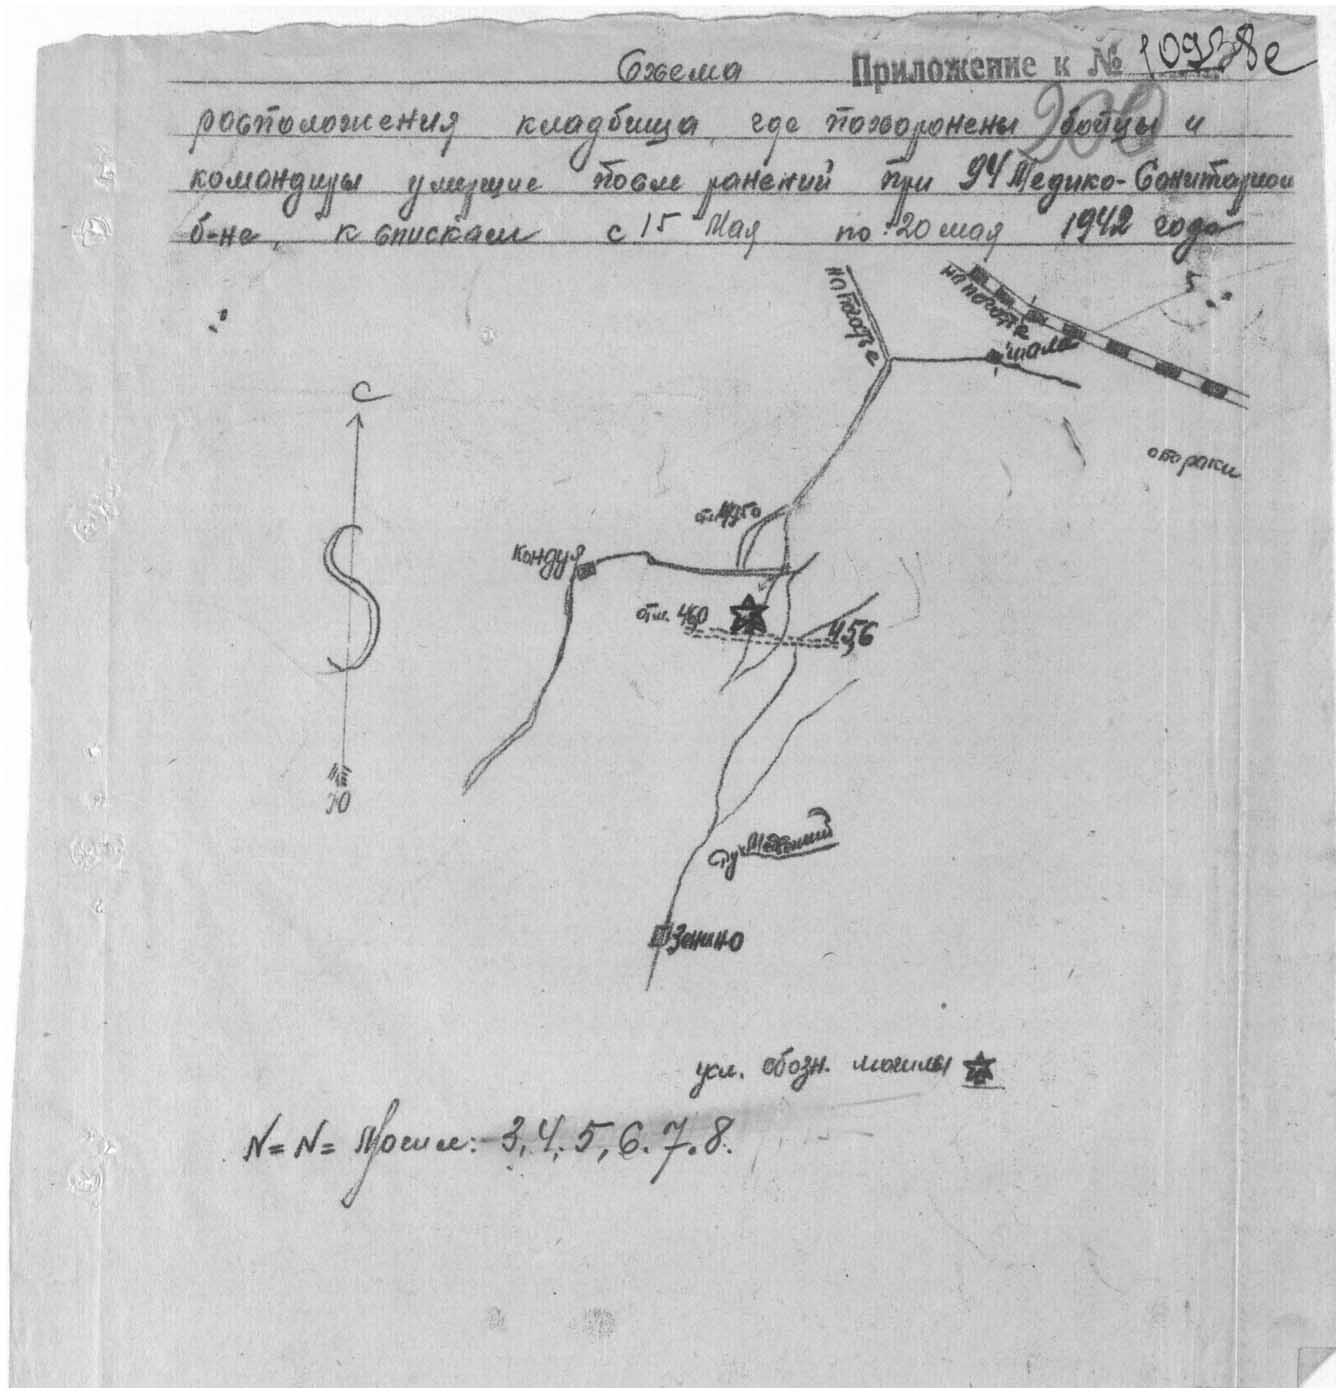 Схема Приложение к № 10938с
200
расположения кладбища, где похоронены бойцы и
командиры умершие после ранений при 94 Медико-Санитарном
б-не, к спискам с 15 Мая по 20 мая 1942 года
на Погостье
на погостье
шала
С
отм. 45,0
Кондуя
отм. 46,0
45,6
Ю
руч
Зенино
усл. обозн. могилы
N= N= Могил: 3, 4, 5, 6. 7. 8.